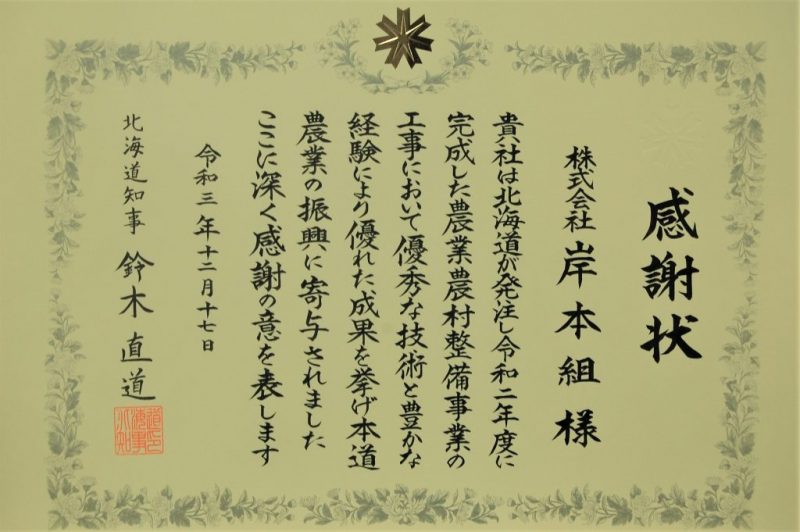 感謝状
株式会社 岸本組 様
貴社は北海道が発注し令和二年度に
完成した農業農村整備事業の
工事において優秀な技術と豊かな
経験により優れた成果を挙げ本道
農業の振興に寄与されました
ここに深く感謝の意を表します
令和三年十二月十七日
北海道知事 鈴木直道